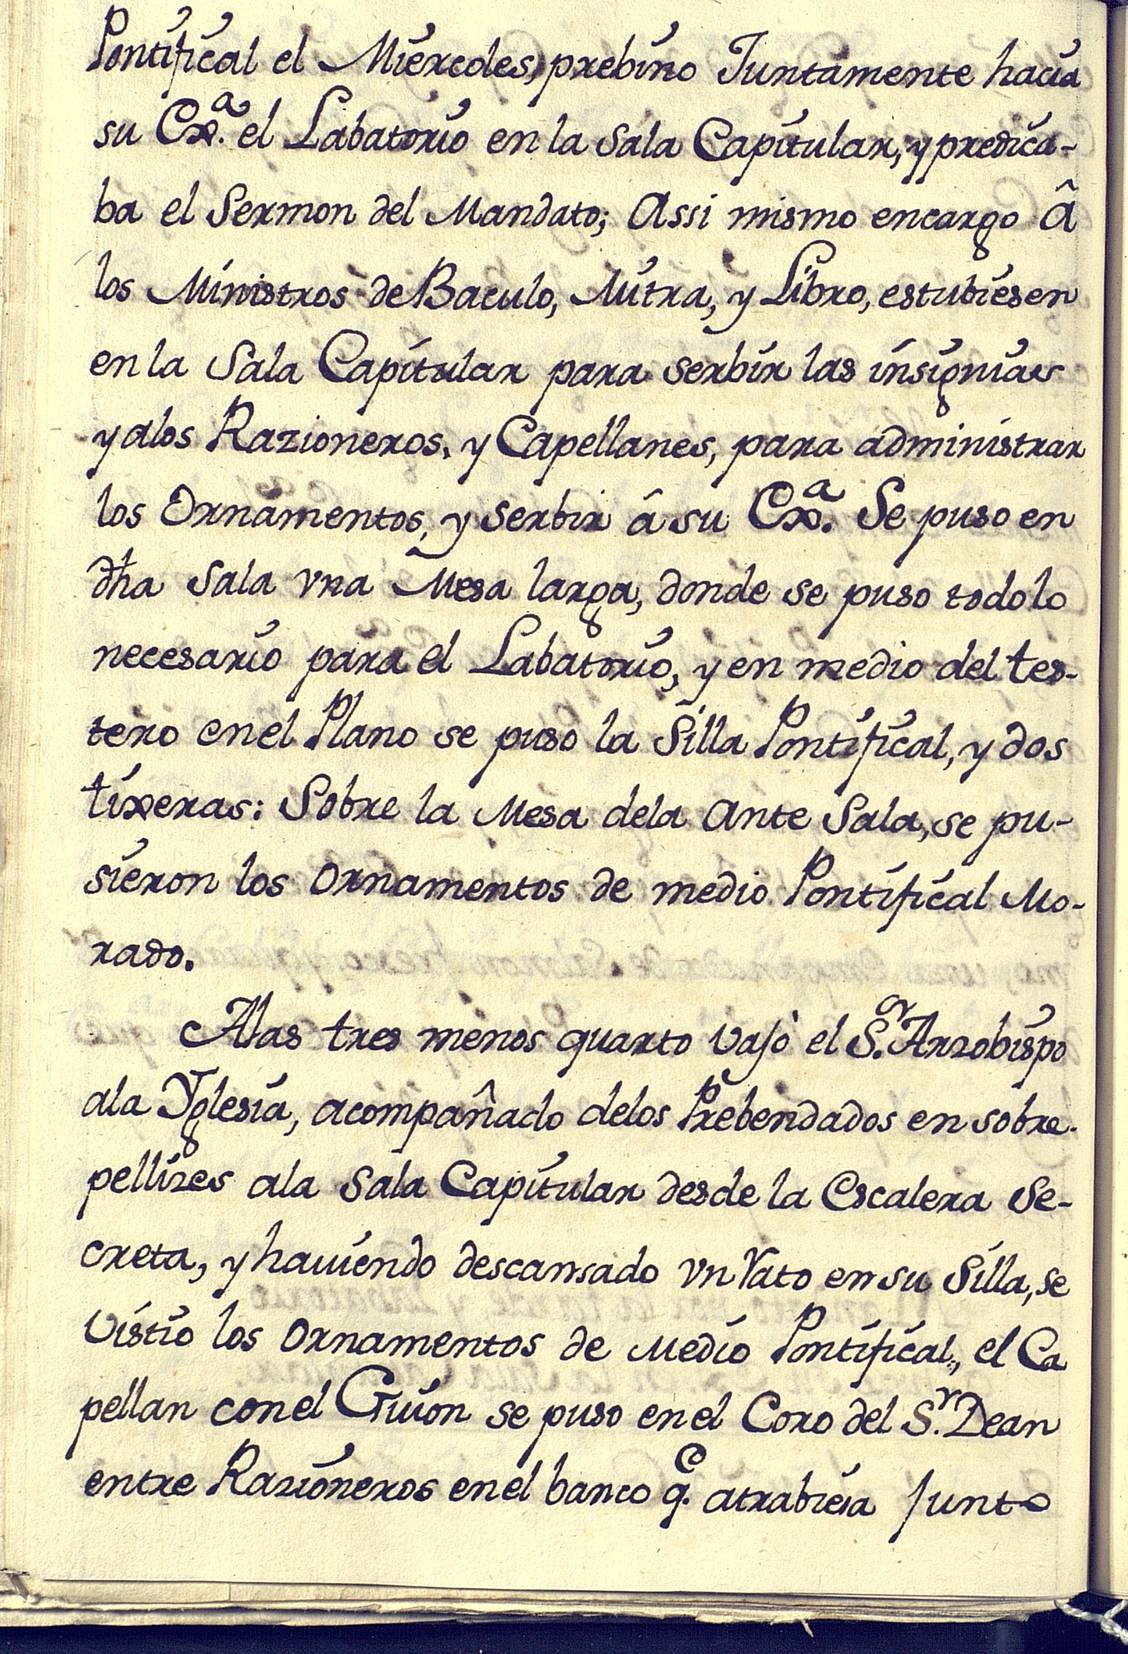 Pontifical el Miercoles, prebino Juntamente hacia
su Exª. el Labatorio en la Sala Capitular, y predica-
ba el Sermon del Mandato; Assi mismo encargo â
los Ministros de Baculo, Mitra, y Libro, estubiesen
en la Sala Capitular para serbir las insignias
y alos Razioneros, y Capellanes, para administrar
los Ornamentos, y serbir â su Exª. Se puso en
dha Sala vna Mesa larga, donde se puso todo lo
necesario para el Labatorio, y en medio del tes-
tero en el Plano se puso la Silla Pontifical, y dos
tixeras: Sobre la Mesa dela Ante Sala, se pu-
sieron los Ornamentos de medio Pontifical Mo-
rado.
Alas tres menos quarto vajò el S.ᵒʳ Arzobispo
ala Yglesia, acompañado delos Prebendados en sobre-
pellizes ala Sala Capitular desde la Escalera Se-
creta, y haviendo descansado vn Rato en su Silla, se
vistio los Ornamentos de Medio Pontifical, el Ca
pellan con el Guion se puso en el Coro del S.ʳ Dean
entre Razioneros en el banco q.ᵉ atrabiesa Junto